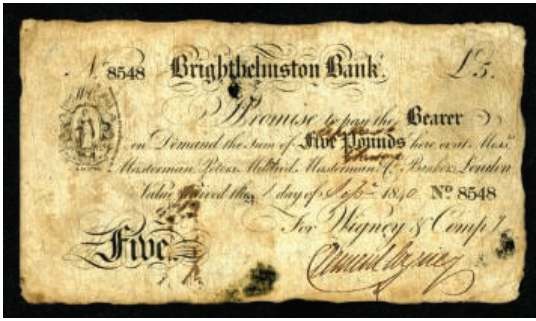 No. 8548 Brighthelmston Bank. £5.
Promise to pay the Bearer
on Demand the Sum of Five Pounds here or at Messrs.
Masterman, Peters, Mildred, Masterman & Co. Bankers London
Value received this 1 day of 1840 No 8548
For Wigney & Comp.y
Five